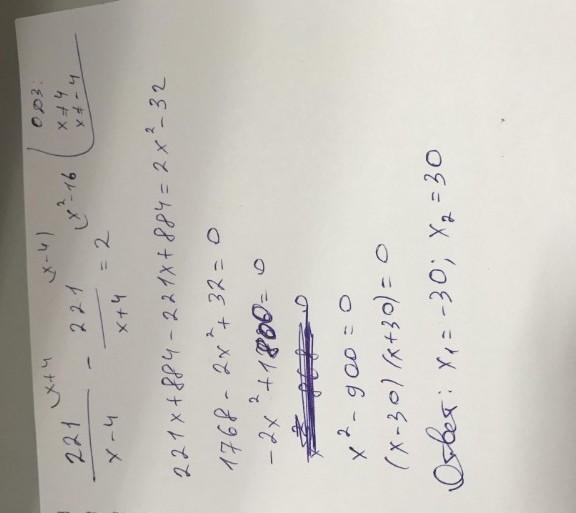 221 \(x+4 / x-4 - 221 \(x-4) / x+4 = 2 \(x²-16
ОДЗ:
x≠4
x≠-4
221x+884-221x+884=2x²-32
1768-2x²+32=0
-2x²+1800=0
x²-900=0
(x-30)(x+30)=0
Ответ: x₁=-30; x₂=30